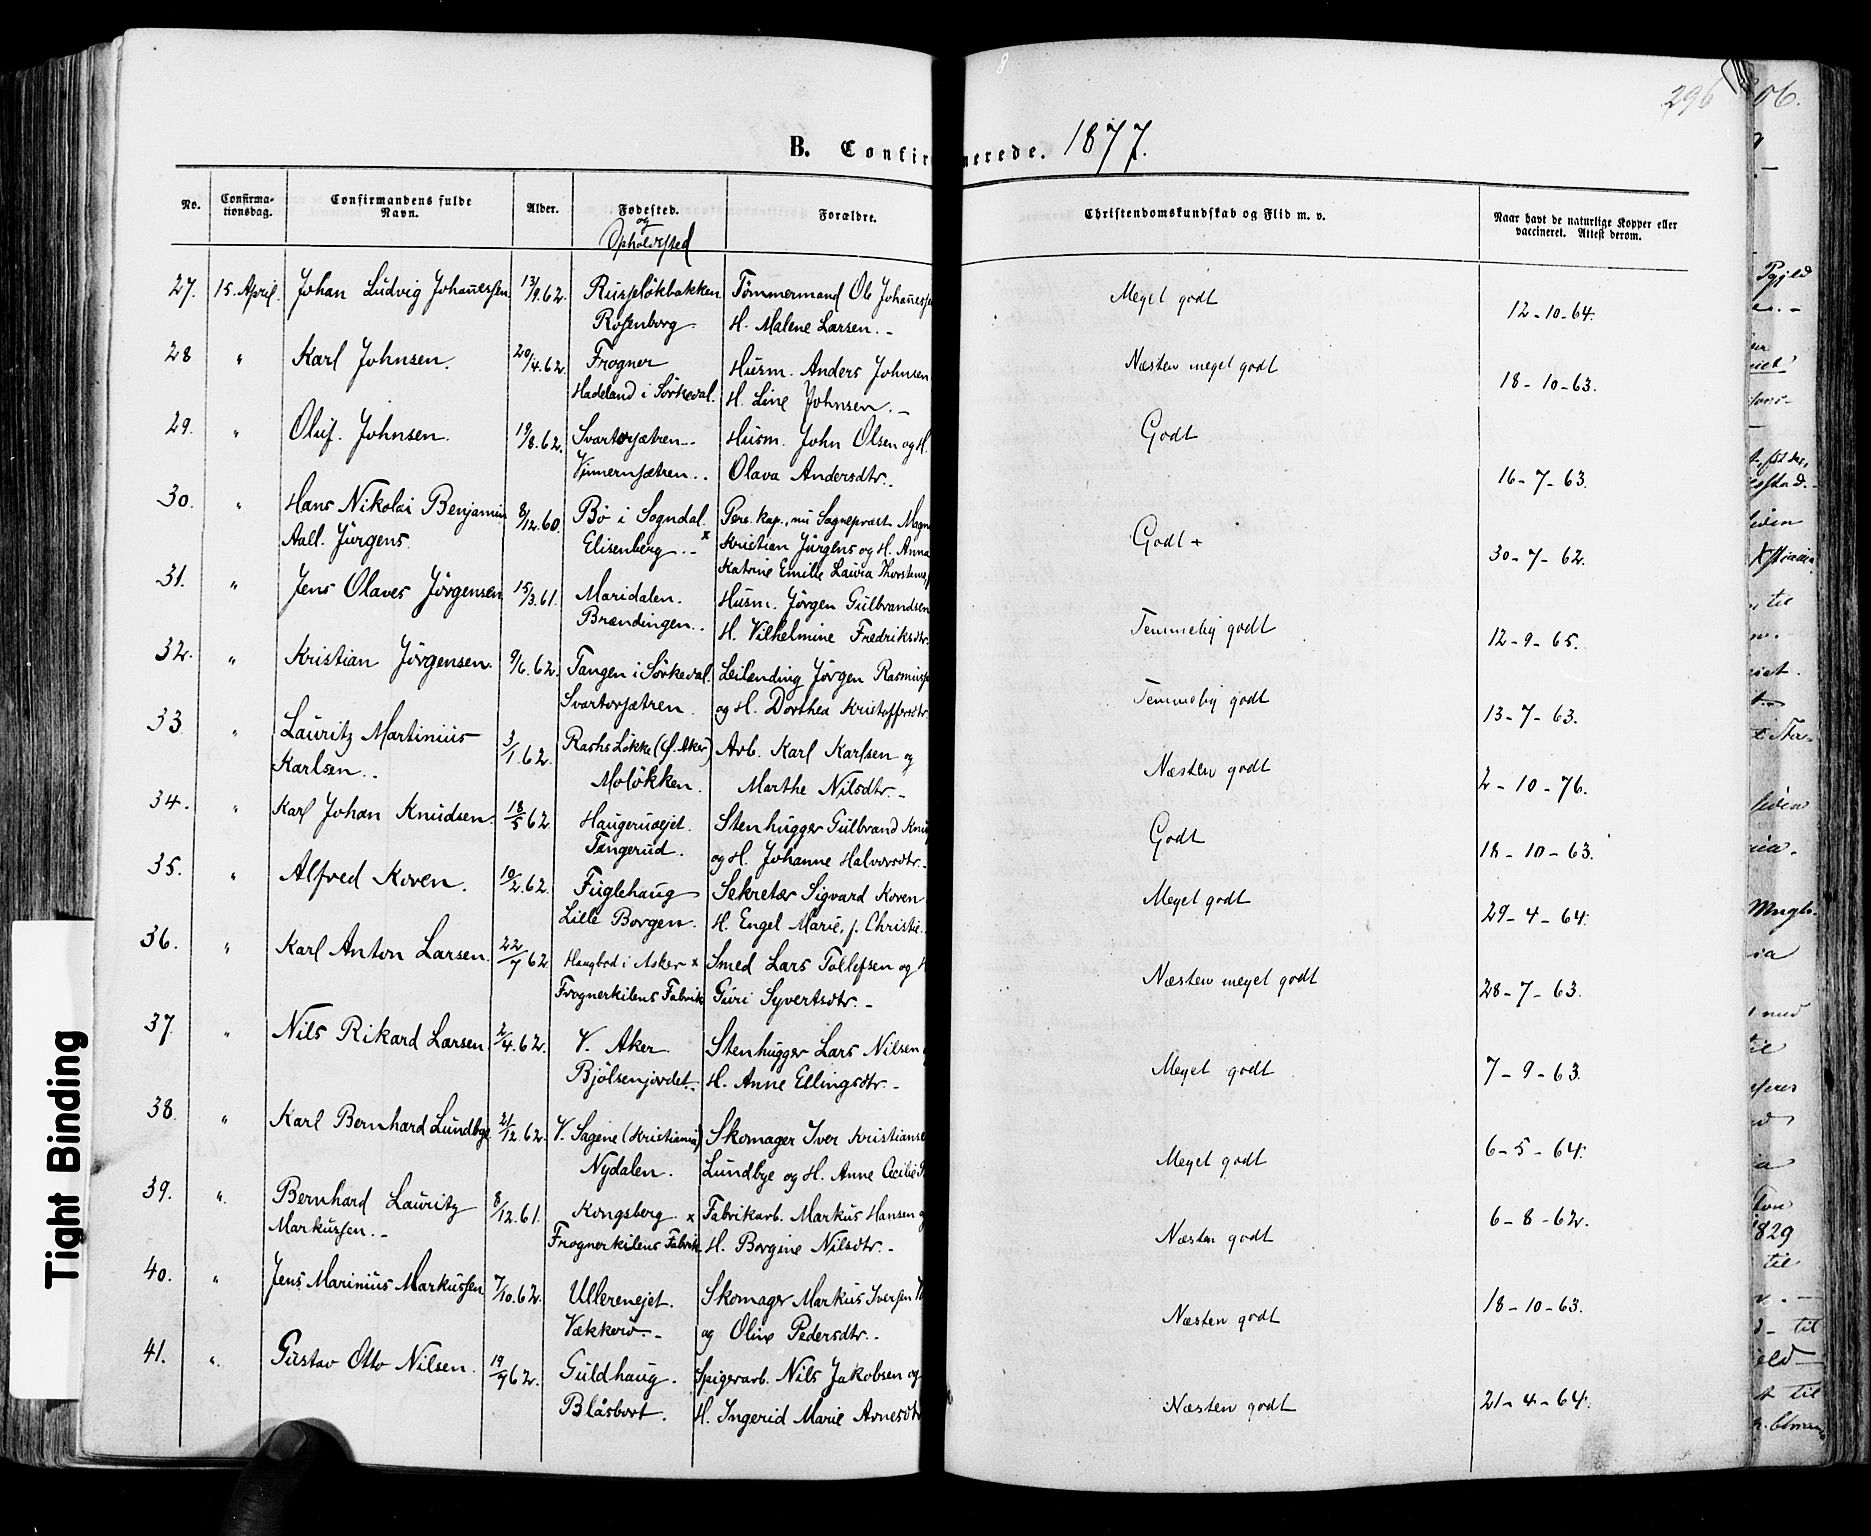 296
B. Confir
merede. 1877.
No. Confirma-tionsdag. Confirmandens fulde Navn. Alder. Fødested. og Opholdssted Forældre. Christendomskundskab og Flid m. v. Naar havt de naturlige Kopper eller vaccineret. Attest derom.
27. 15. April. Johan Ludvig Johanessen 13/9.62. Ruseløkbakken Tömmermand Ole Johaness Meget godt 12-10-64.
Rosenborg. H. Malene Larsen.-
28 " Karl Johnsen. 20/4.62. Frogner Husm. Anders Johnsen Næsten meget godt 18-10-63.
Hadeland i Sörkedal. H. Line Johnsen.-
29. " Oluf. Johnsen. 19/8.62. Svartorsætren.. Husm. John Olsen og H. Godt 16-7-63.
Vinnernsætren.. Olava Andersdtr.
30. " Hans Nikolai Benjamin 8/12.60. Bö i Sogndal. Pers. kap., nu Sognepræst Magn Godt + 30-7-62.
Aall. Jürgens. Elisenberg..x Kristian Jürgens og H. Anna
Katrine Emilie Laura Thorstens
31. " Jens Olaves Jörgensen 15/3.61. Maridalen. Husm. Jörgen Gulbrandsen Temmelig godt 12-9-65.
Brændingen.. H. Vilhelmine Fredriksdtr.
32. " Kristian Jörgensen. 9/6.62. Tangen i Sörkedal. Leilending Jörgen Rasmuss Temmelig godt 13-7-63.
Svartorsætren. og H. Dorthea Kristoffersdtr.
33 " Lauritz Martinius 3/1.62. Rashs Lökke (Ø. Aker) Arb. Karl Karlsen og Næsten godt 2-10-76.
Karlsen.. Molökken. Marthe Nilsdtr.-
34. " Karl Johan Knudsen. 18/5 62 Haugerudejet. Stenhugger Gulbrand Knu Godt 18-10-63.
Tangerud. og H. Johanne Halvorsdtr.
35. " Alfred Koren. 10/2.62. Fuglehaug Sekretær Sigvard Koren Meget godt 29-4-64.
Lille Borgen. H. Engel Marie, f. Christie.
36. " Karl Anton Larsen. 22/7 62 Haugbrd i Asker x Smed Lars Tollefsen og H Næsten meget godt 28-7-63.
Frognerkilens Fabrik Guri Syvertsdtr.-
37. " Nils Rikard Larsen 2/4.62. V. Aker. Stenhugger Lars Nilsen Meget godt 7-9-63.
Bjölsenjordet. H. Anne Ellingsdtr.-
38. " Karl Bernhard Lundbye 21/12.62. V. Sagene (Kristiania) Skomager Iver Kristianse Meget godt 6-5-64.
Nydalen. Lundbye og H. Anne Cecilie
39. " Bernhard Lauritz 8/12.61. Kongsberg x Fabrikarb. Markus Hansen Næsten godt 6-8-62.
Markussen.- Frognerkilens Fabrik H. Borgine Nilsdtr.-
40. " Jens Marinius Markussen 7/10.62. Ullerenejet. Skomager Markus Iversen Næsten godt 18-10-63.
Vækkerö.- og Oline Pedersdtr..
41. " Gustav Otto Nilsen. 19/9 62. Guldhaug. Spigerarb. Nils Jakobsen og Næsten godt 21-4-64.
Blåsbort. H. Ingerid Marie Arnesdtr
Tight Binding
06.
til
829
til
til